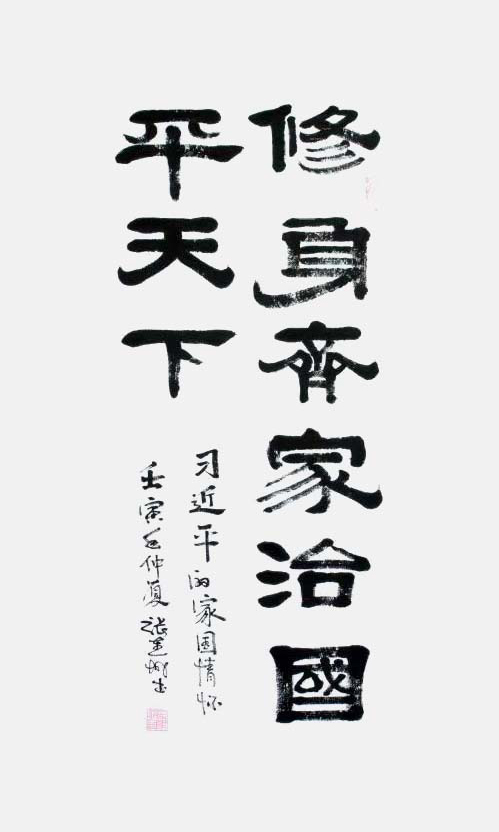 修身齊家治國
平天下
习近平的家国情怀
壬寅年仲夏